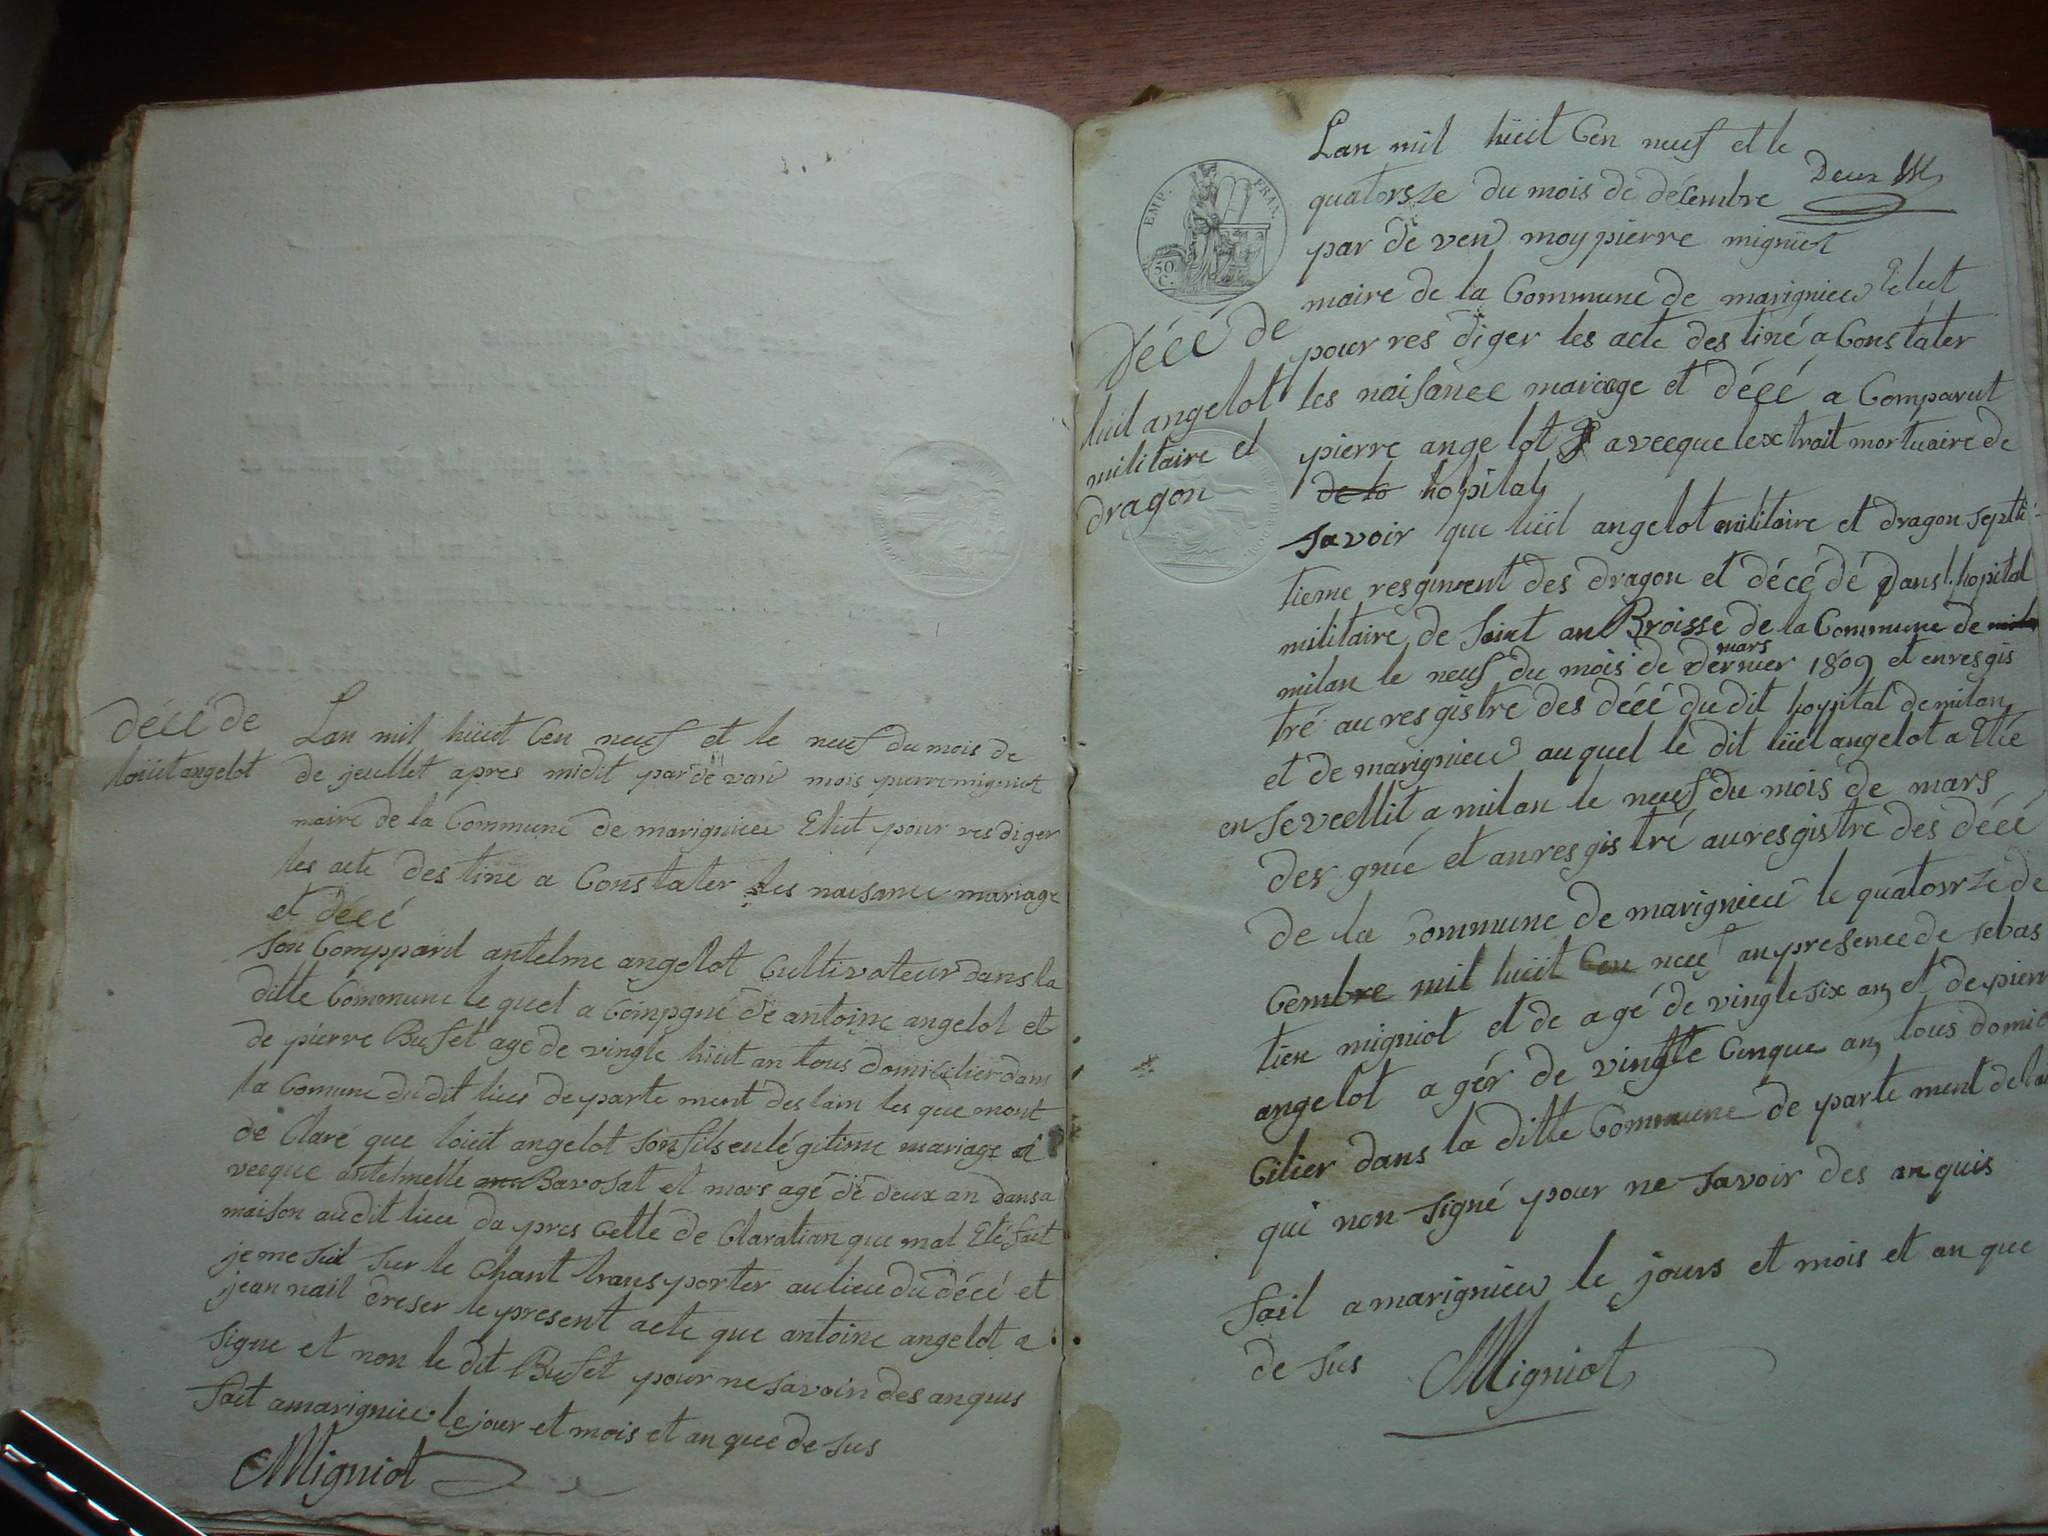 décé de
loüit angelot
Lan mil hüit Cen neuf et le neuf du mois de
de jeullet apres midit par de van mois pierre migniot
maire de la Commune de marignieu Elut pour res diger
les acte des tiné a Constater les naisance mariage
et décé
son Comppard antelme angelot Cultivateur dans la
ditte Commune le quel a Compgné de antoine angelot et
de pierre Bufet age de vingle hüit an tous domicilier dans
la Comune du dit lieu de parte ment des lain les que mont
de Claré que loüit angelot son fils en légitime mariage a
vecque antelmette Bavosat et mors agé de deux an dans a
maison au dit lieu da pres Cette de Claratian que mat Eté fait
je me suit sur le Chant trans porter au lieu du décé et
jean nail dreser le present acte que antoine angelot a
signe et non le dit Bufet pour ne savoir des an quis
fait a marignieu le jour et mois et an que de sus
Migniot
EMP. FRAN.
50 C.
Lan mil hüit Cen neuf et le
quatorsze du mois de décembre Deux
par de ven moy pierre migniot
maire de la Commune de marignieu Elut
pour res diger les acte des tiné a Constater
décé de
les naisance mariage et décé a Comparut
lüil angelot
pierre angelot avecque lextrait mortuaire de
militaire et
de la hopital
dragon
savoir que lüil angelot militaire et dragon septi
tieme resgiment des dragon et décé dé dans l'hopital
militaire de saint an Broisse de la Commune de
milan le neuf du mois de mars dernier 1809 et enresgis
tré au resgistre des décé du dit hopital de milan
et de marignieu au quel le dit lüil angelot a Eté
en seveellit a milan le neuf du mois de mars
der gnié et anresgistré au resgistre des décé
de la Commune de marignieu le quatorsze de
Cembre mil hüit Cen neuf an presence de sebas
tien migniot et de agé de vingle six an, et de pierr
angelot a gér de vingtte Cinque an, tous domi
Cilier dans la ditte Commune de parte ment de lai
qui non signé pour ne savoir des an quis
fail a marignieu le jours et mois et an que
de sus Migniot